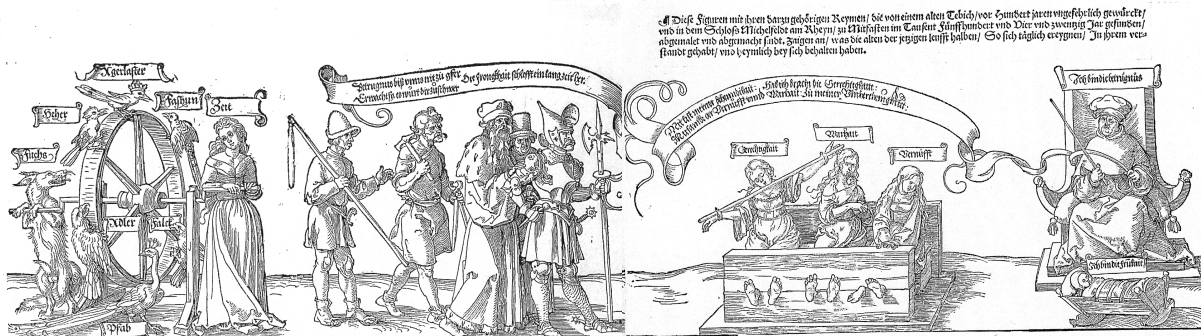 ¶ Diese Figuren mit jhren darzu gehörigen Reymen/ die von einem alten Tebich/ vor Hundert jaren vngefehrlich gewürckt/
vnd in dem Schloß Michelfeldt am Rheyn/ zu Mitfasten im Tausent Fünffhundert vnd Vier vnd zwentzig Jar gefunden/
abgemalet vnd abgemacht sindt. Zaigen an/ was die alten der jetzigen leufft halben/ So sich täglich ereygnen/ In jhrem ver-
standt gehabt/ vnd heymlich bey sich behalten haben.
Agerlaster
Heher
Fashun
Zeit
Fuchs
Adler
Falck
Pfab
Betrugnus biß vnns nit zu gfer
Der Frongkait schlafft ein lang zeit her
er wurt dir zu schwer
Mit list meiner behendikait
Hab ich bracht die Gerechtigkait:
der Vernufft vnnd Warhait Zu meiner Vnderthenigkait
Gerechtigkait
Warhait
Vernufft
Ich bin die betrugnus
Ich bin die Frumkait